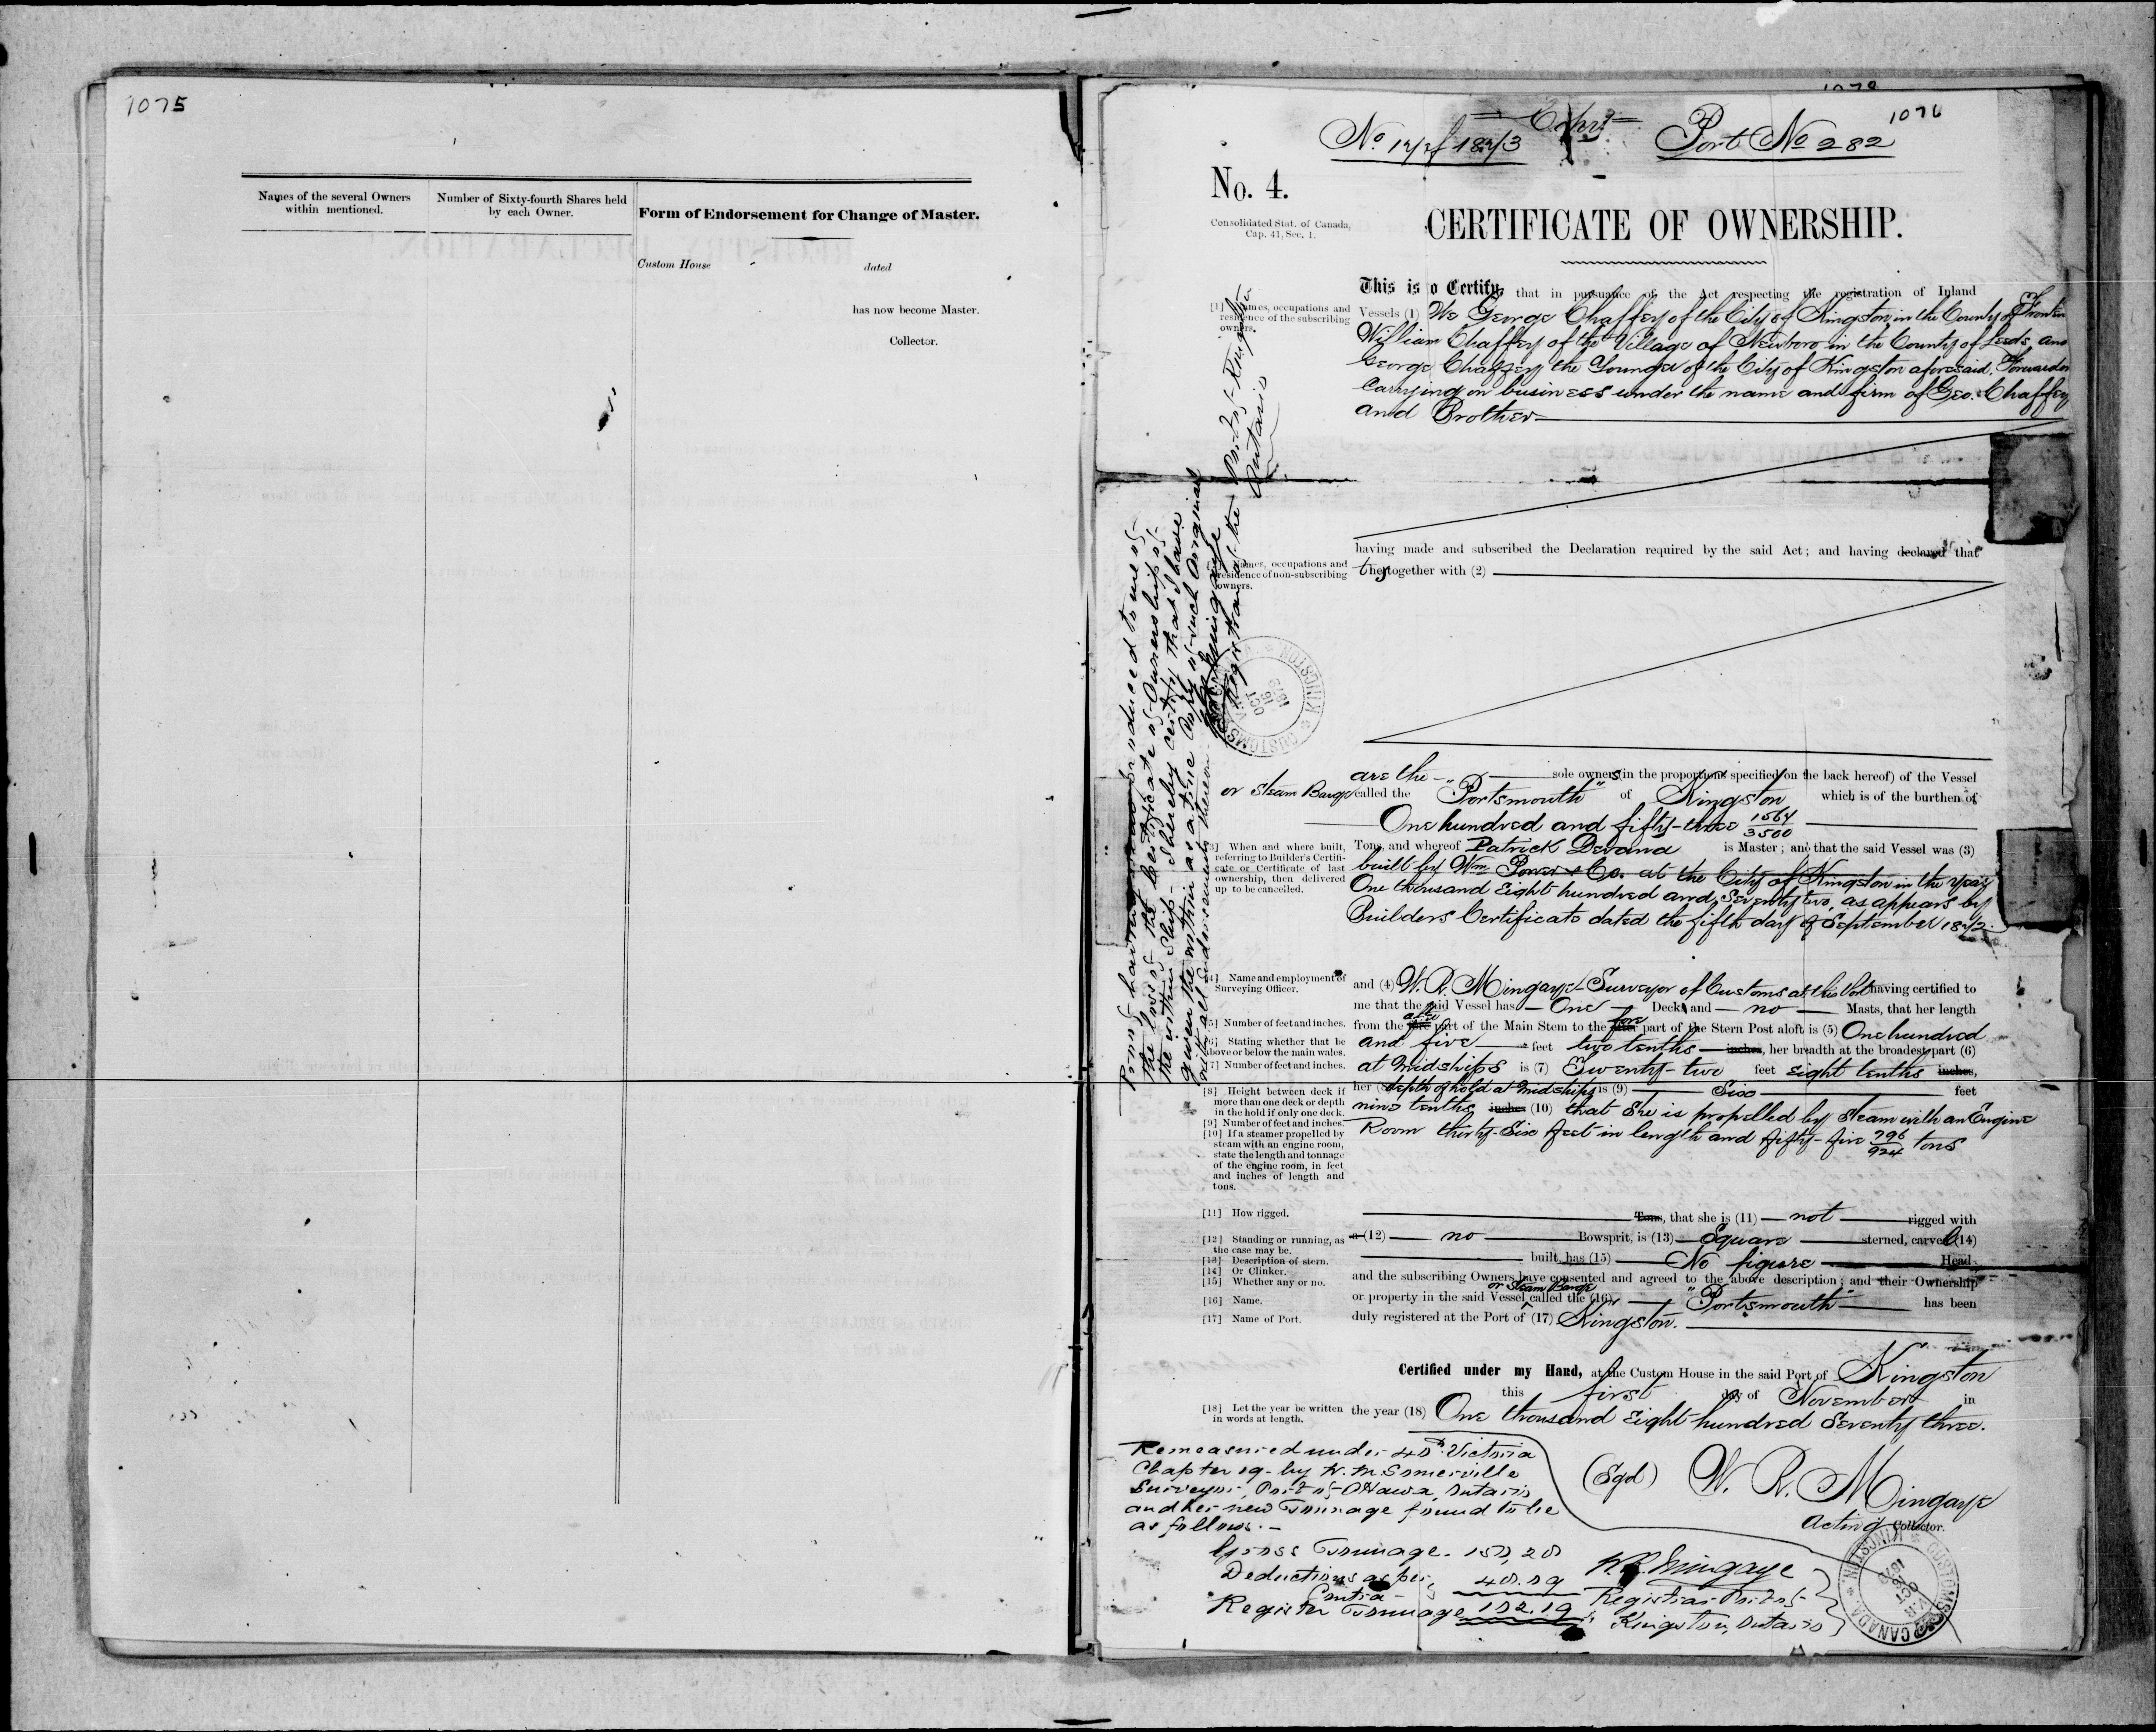 1075
Names of the several Owners
within mentioned.
Number of Sixty-fourth Shares held
by each Owner.
Form of Endorsement for Change of Master.
Custom House dated
has now become Master.
Collector.
1076
Copy
No 12 of 1873 Port No 282
No. 4.
Consolidated Stat. of Canada,
Cap. 41, Sec. 1.
CERTIFICATE OF OWNERSHIP.
This is to Certify, that in pursuance of the Act respecting the registration of Inland
[1] Names, occupations and
residence of the subscribing
owners.
Vessels (1) We George Chaffey of the City of Kingston in the County of
William Chaffey of the Village of Newboro in the County of Leeds, and
George Chaffey the Younger of the City of Kingston aforesaid, Forwarders
Carrying on business under the name and firm of Geo. Chaffey
and Brother
having made and subscribed the Declaration required by the said Act; and having declared that
Names, occupations and
residence of non-subscribing
owners.
they together with (2)
are the sole owners (in the proportions specified on the back hereof) of the Vessel
or Steam Barge called the "Portsmouth" of Kingston which is of the burthen of
One hundred and fifty-three 1564/3500
[3] When and where built,
referring to Builder's Certifi-
cate or Certificate of last
ownership, then delivered
up to be cancelled.
Tons, and whereof Patrick Devana is Master; and that the said Vessel was (3)
built by Wm Power & Co. at the City of Kingston in the year
One thousand Eight hundred and Seventy two, as appears by
Builders Certificate dated the fifth day of September 1872.
[4] Name and employment of
Surveying Officer.
and (4) W. R. Mingaye Surveyor of Customs at this Port having certified to
me that the said Vessel has One Deck and no Masts, that her length
[5] Number of feet and inches.
from the fore part of the Main Stem to the fore part of the Stern Post aloft is (5) One hundred
[6] Stating whether that be
above or below the main wales.
and five feet two tenths inches, her breadth at the broadest part (6)
[7] Number of feet and inches.
at Midships is (7) Twenty-two feet eight tenths inches,
[8] Height between deck if
more than one deck or depth
in the hold if only one deck.
her (8) depth of hold at Midships is (9) Six feet
[9] Number of feet and inches.
nine tenths inches (10) that She is propelled by Steam with an Engine
[10] If a steamer propelled by
steam with an engine room,
state the length and tonnage
of the engine room, in feet
and inches of length and
tons.
Room thirty-Six feet in length and fifty-five 796/924 tons
[11] How rigged.
Tons, that she is (11) not rigged with
[12] Standing or running, as
the case may be.
a (12) no Bowsprit, is (13) Square sterned, carvel (14)
[13] Description of stern.
[14] Or Clinker.
[15] Whether any or no.
built, has (15) No figure Head
and the subscribing Owners have consented and agreed to the above description; and their Ownership
or Steam Barge
[16] Name.
or property in the said Vessel called the (16) "Portsmouth" has been
[17] Name of Port.
duly registered at the Port of (17) Kingston.
Certified under my Hand, at the Custom House in the said Port of Kingston
this first day of November in
[18] Let the year be written
in words at length.
the year (18) One thousand Eight hundred Seventy three.
(Sgd) W. R. Mingaye
Acting Collector.
Remeasured under 40th Victoria
Chapter 19 - by W. M. Somerville
Surveyor, Port of Ottawa, Ontario
and her new Tonnage found to be
as follows. -
Gross Tonnage - 150,28
Deductions as per
Contra 48.09
Register Tonnage 102.19
W. R. Mingaye
Registrar Port of
Kingston, Ontario
Proof having been produced to me of
the loss of the Certificate of Ownership of
the within Ship - I hereby certify that I have
given the within as a true Copy of such Original
with all endorsements thereon
W. R. Mingaye
Registrar of the Port of Kingston
Ontario
CUSTOMS CANADA KINGSTON
OCT
CUSTOMS KINGSTON
OCT
16